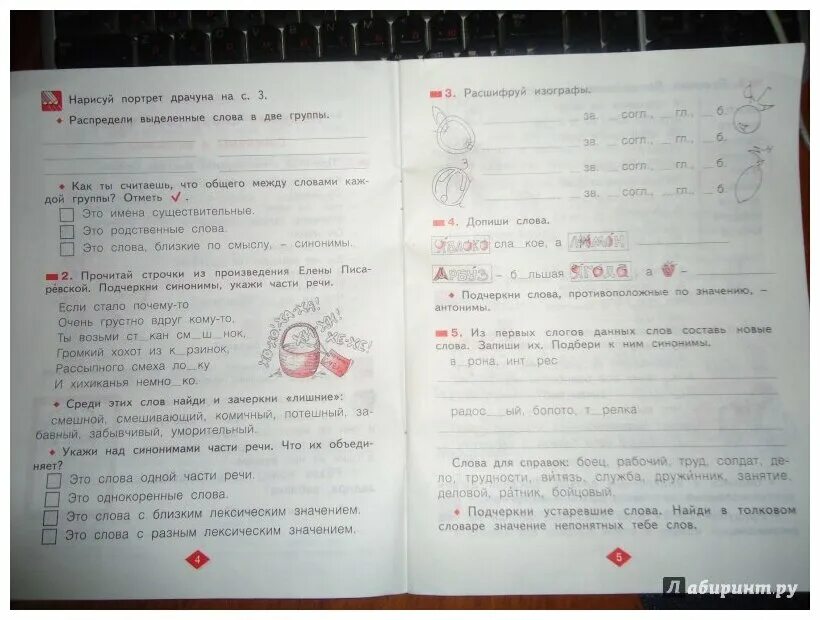 Нарисуй портрет драчуна на с. 3.
Распредели выделенные слова в две группы.
Как ты считаешь, что общего между словами каж-
дой группы? Отметь ✓.
Это имена существительные.
Это родственные слова.
Это слова, близкие по смыслу, – синонимы.
2. Прочитай строчки из произведения Елены Писа-
ревской. Подчеркни синонимы, укажи части речи.
Если стало почему-то
Очень грустно вдруг кому-то,
Ты возьми ст_кан см_ш_нок,
Громкий хохот из к_рзинок,
Рассыпного смеха ло_ку
И хихиканья немно_ко.
ХО-ХО! ХА-ХА! ХИ! ХЕ-ХЕ!
Среди этих слов найди и зачеркни «лишние»:
смешной, смешивающий, комичный, потешный, за-
бавный, забывчивый, уморительный.
Укажи над синонимами части речи. Что их объеди-
няет?
Это слова одной части речи.
Это однокоренные слова.
Это слова с близким лексическим значением.
Это слова с разным лексическим значением.
4
3. Расшифруй изографы.
зв. _ согл., _ гл., _ б.
зв. _ согл., _ гл., _ б.
зв. _ согл., _ гл., _ б.
зв. _ согл., _ гл., _ б.
4. Допиши слова.
ЯБЛОКО сла_кое, а ЛИМОН
АРБУЗ – б_льшая ЯГОДА, а –
Подчеркни слова, противоположные по значению, –
антонимы.
5. Из первых слогов данных слов составь новые
слова. Запиши их. Подбери к ним синонимы.
в_рона, инт_рес
радос_ый, болото, т_релка
Слова для справок: боец, рабочий, труд, солдат, де-
ло, трудности, витязь, служба, дружинник, занятие,
деловой, ратник, бойцовый.
Подчеркни устаревшие слова. Найди в толковом
словаре значение непонятных тебе слов.
5
Лабиринт.ру